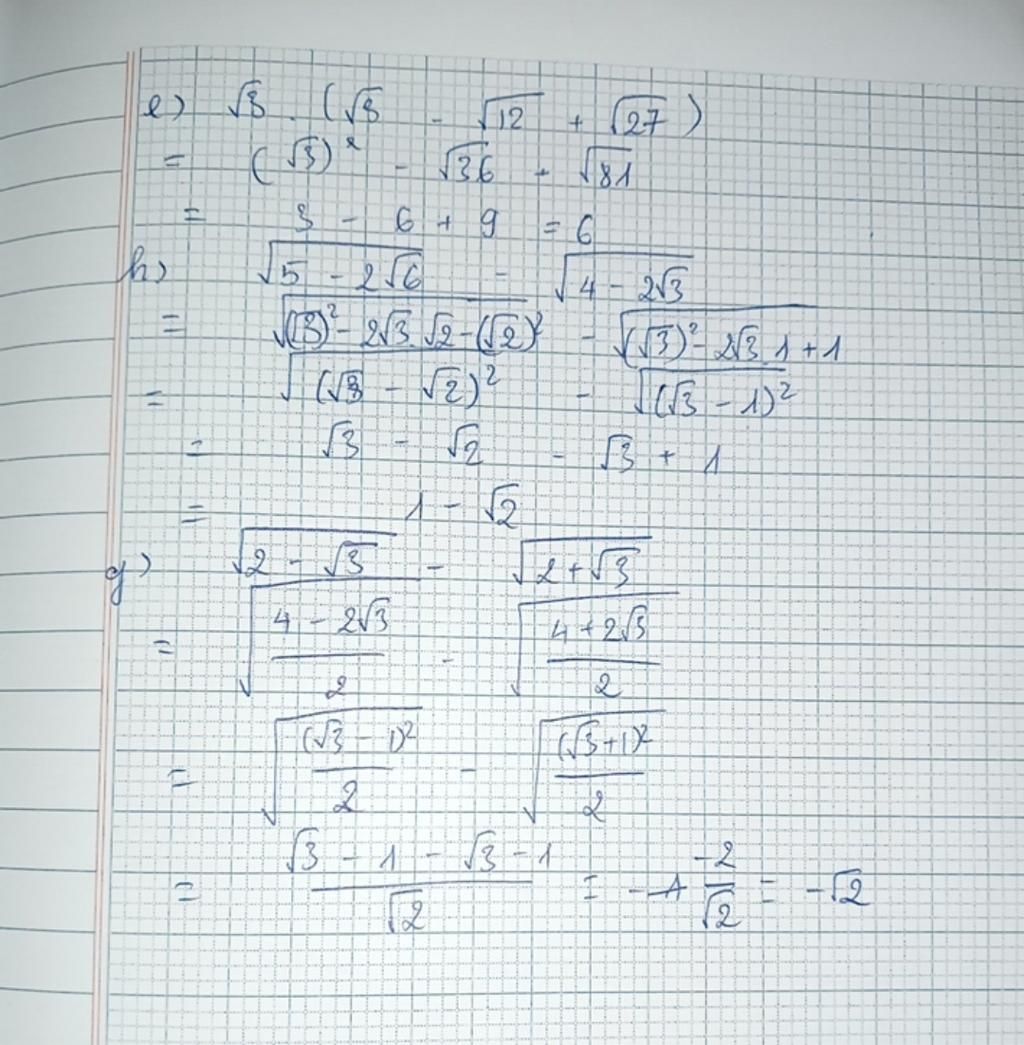 e) √3 . (√3 - √12 + √27)
= (√3)² - √36 + √81
= 3 - 6 + 9 = 6
h) √(5 - 2√6) - √(4 - 2√3)
= √((√3)² - 2√3.√2 - (√2)²) - √((√3)² - 2√3.1 + 1)
= √((√3 - √2)²) - √((√3 - 1)²)
= √3 - √2 - √3 + 1
= 1 - √2
g) √(2 - √3) - √(2 + √3)
= √((4 - 2√3)/2) - √((4 + 2√3)/2)
= √((√3 - 1)²/2) - √((√3 + 1)²/2)
= (√3 - 1 - √3 - 1)/√2 = -2/√2 = -√2